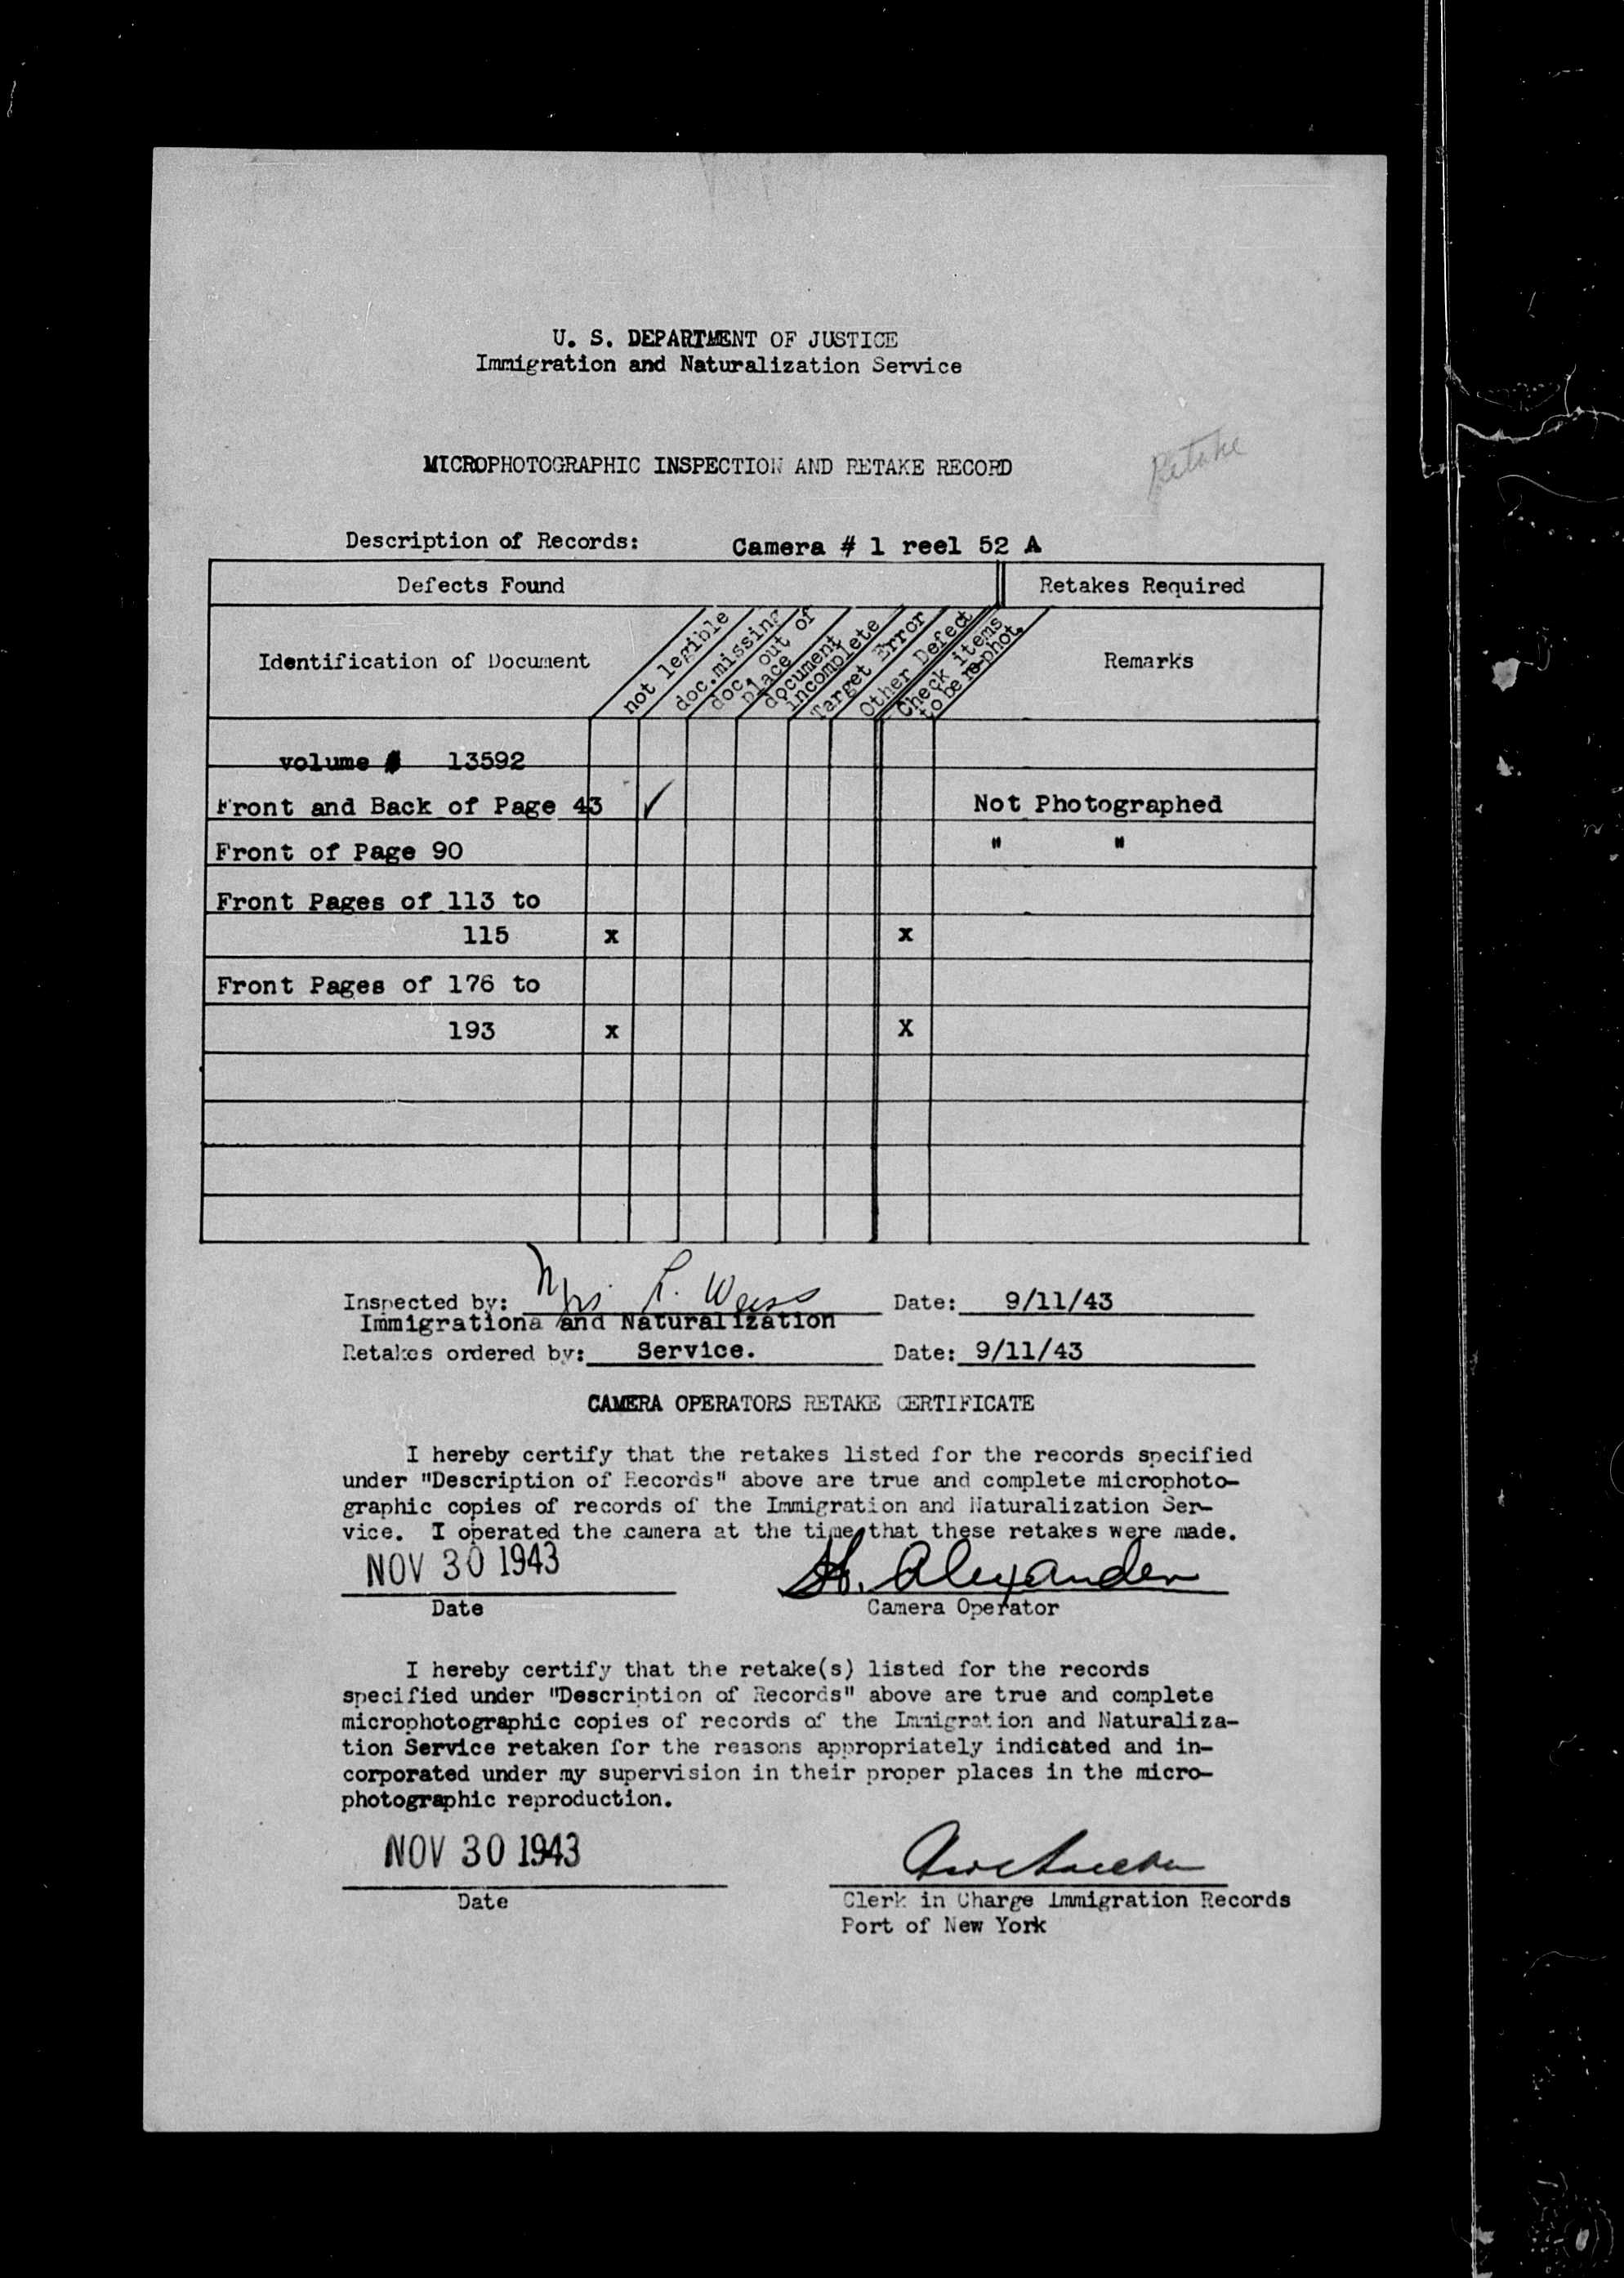 U. S. DEPARTMENT OF JUSTICE
Immigration and Naturalization Service
Retake
MICROPHOTOGRAPHIC INSPECTION AND RETAKE RECORD
Description of Records: Camera # 1 reel 52 A
Defects Found Retakes Required
Identification of Document not legible doc.missing doc. out of place document incomplete Target Error Other Defect Check items to be re-phot. Remarks
volume # 13592
Front and Back of Page 43 ✓ Not Photographed
Front of Page 90 " "
Front Pages of 113 to
115 x x
Front Pages of 176 to
193 x X
Inspected by: Mrs L. Weiss Date: 9/11/43
Immigrationa and Naturalization
Retakes ordered by: Service. Date: 9/11/43
CAMERA OPERATORS RETAKE CERTIFICATE
I hereby certify that the retakes listed for the records specified
under "Description of Records" above are true and complete microphoto-
graphic copies of records of the Immigration and Naturalization Ser-
vice. I operated the camera at the time that these retakes were made.
NOV 30 1943 H. Alexander
Date Camera Operator
I hereby certify that the retake(s) listed for the records
specified under "Description of Records" above are true and complete
microphotographic copies of records of the Immigration and Naturaliza-
tion Service retaken for the reasons appropriately indicated and in-
corporated under my supervision in their proper places in the micro-
photographic reproduction.
NOV 30 1943
Date Clerk in Charge Immigration Records
Port of New York